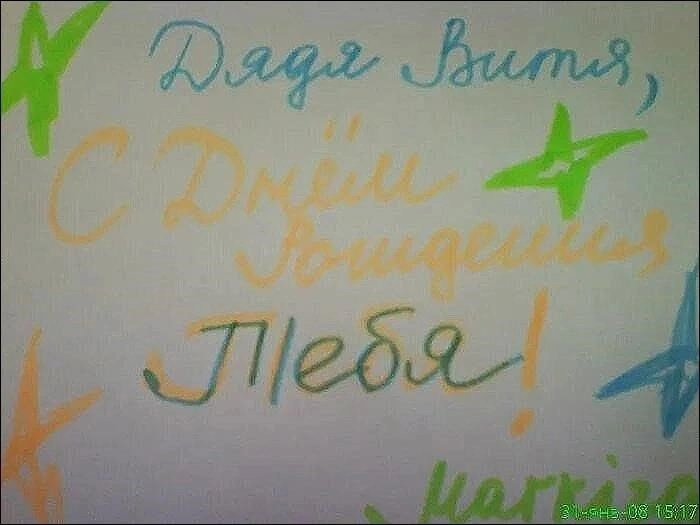 Дядя Витя,
С Днём
Рождения
Тебя!
Markiza
31-янв-08 15:17